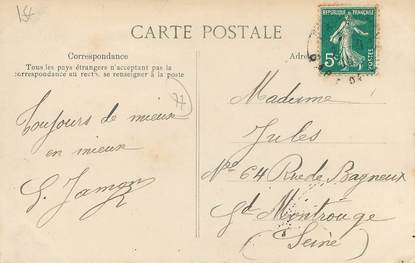 CARTE POSTALE
Correspondance
Tous les pays étrangers n'acceptant pas la
correspondance au recto, se renseigner à la poste
REPUBLIQUE FRANÇAISE
5c
POSTES
Toujours de mieux
en mieux
Madame
Jules
No 64 Rue de Bagneux
Gd Montrouge
(Seine)